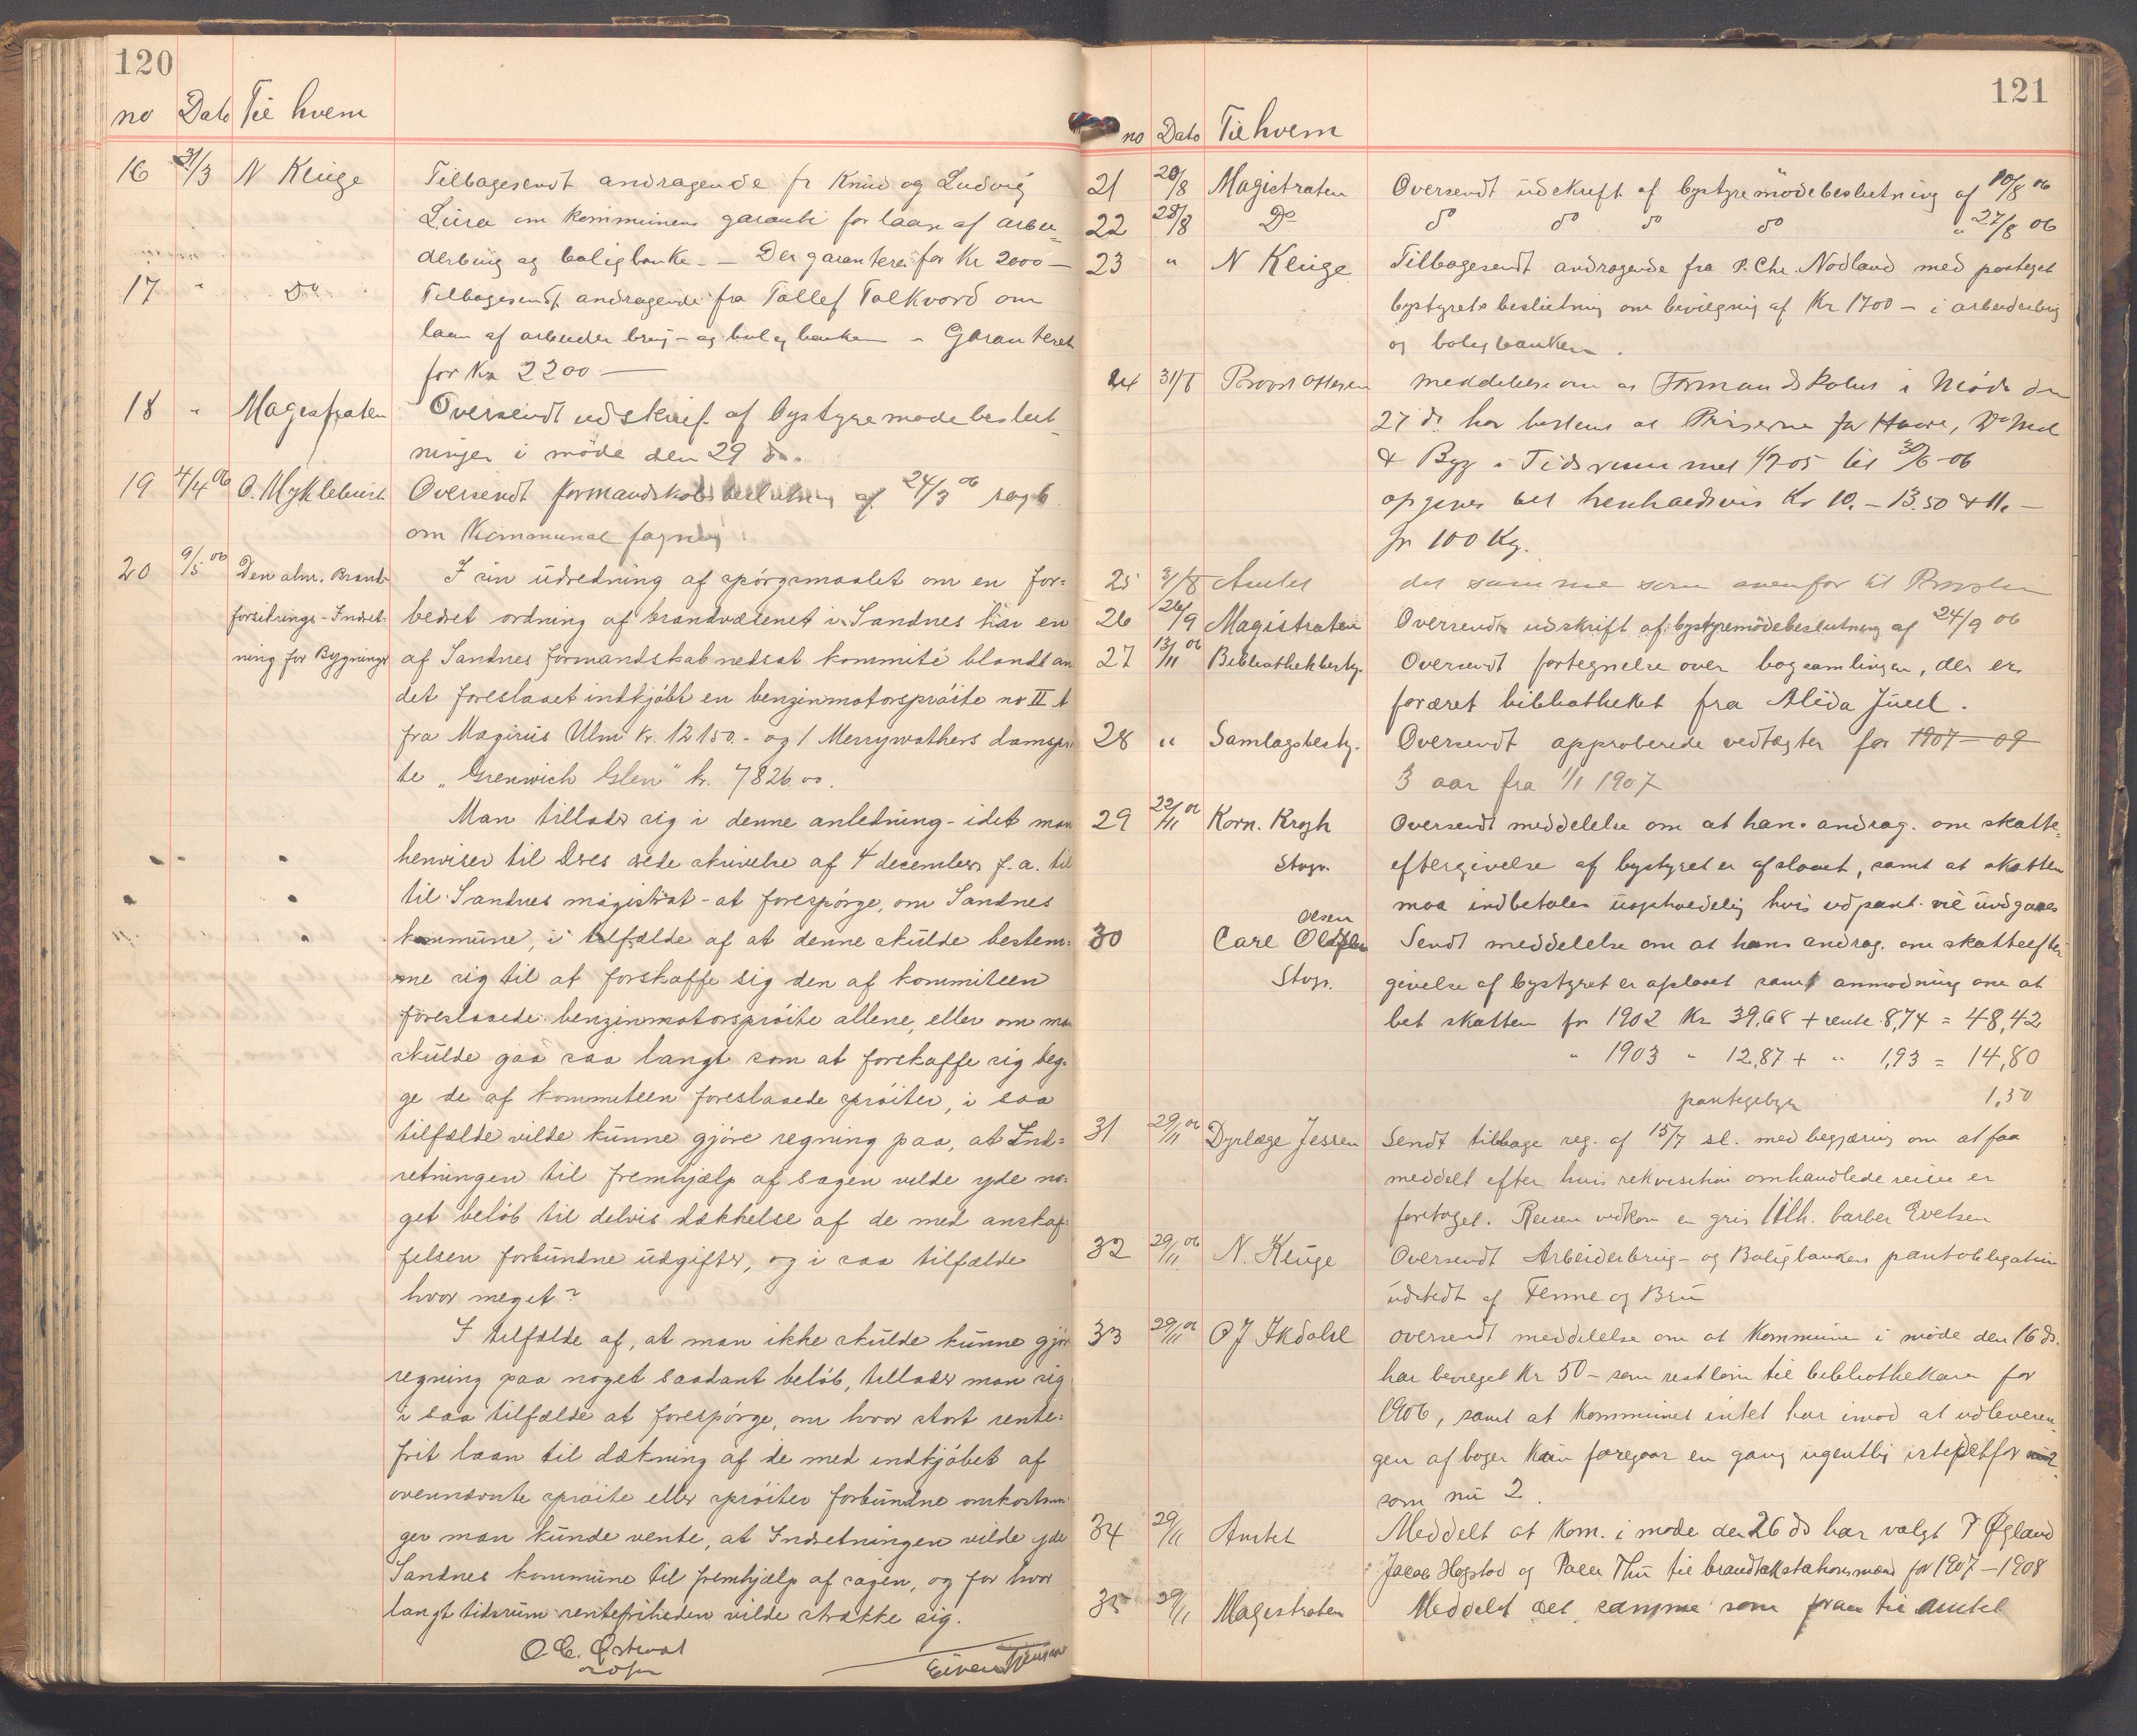 120
no Dato Til hvem
16 31/3 N Kluge Tilbagesendt andragende fr Knud og Ludvig
Lura om kommunens garanti for laan af arbei=
derbrug og boligbanke. — Der garanteres for Kr 2000 —
17 " Do Tilbagesendt andragende fra Tallef Talkvord om
laan af arbeider brug- og bolig banken - Garanteret
for Kr 2200 —
18 " Magistraten Oversendt udskrift af bystyremødebeslut
ninger i møde den 29 ds.
19 4/4 06 O. Myklebust Oversendt formandskabsbeslutning af 24/3 06 sag 6
om Kommunal
20 9/5 06 Den alm. Brand- I sin udredning af spörgsmaalet om en for=
forsikrings-Indret- bedret ordning af brandvæsenet i Sandnes har en
ning for Bygninger af Sandnes formandskab nedsat kommité blandt an
det foreslaaet indkjöbt en benzinmotorspröite no II A
fra Magirus Ulm Kr. 12150.- og 1 Merryweathers damsprø
te „Grenwich Glen" kr. 7826.00.
Man tillader sig i denne anledning - idet man
henviser til Dres ærede skrivelse af 4 december f.a. til
til Sandnes magistrat - at forespørge, om Sandnes
kommune, i tilfælde af at denne skulde bestem=
me sig til at forskaffe sig den af kommiteen
foreslaaede benzinmotorspröite allene, eller om man
skulde gaa saa langt som at forskaffe sig beg-
ge de af kommiteen foreslaaede spröiter, i saa
tilfælde vilde kunne gjöre regning paa, at Ind=
retningen til fremhjælp af sagen vilde yde no-
get belöb til delvis dækkelse af de med anskaf-
felsen forbundne udgifter, og i saa tilfælde
hvor meget?
I tilfælde af, at man ikke skulde kunne gjör
regning paa noget saadant belöb, tillader man sig
i saa tilfælde at forespörge, om hvor stort rente-
frit laan til dækning af de med indkjöbet af
ovennævnte spröite eller spröiter forbundne omkostnin
ger man kunde vente, at Indretningen vilde yde
Sandnes kommune til fremhjælp af sagen, og for hvor
langt tidsrum rentefriheden vilde strække sig.
O. C. Østraat
121
no Dato Til hvem
21 20/8 Magistraten Oversendt udskrift af bystyremödebeslutning af 10/8 06
22 28/8 Do do do do do " 27/8 06
23 " N Kluge Tilbagesendt andragende fra P. Chr. Nodland med paateget
bystyrets beslutning om bevilgnig af Kr 1700 — i arbeiderbrug
og boligbanken.
24 31/8 Provst Ottesen meddelelse om at Formandskabet i Møde den
27 ds. har bestemt at Priserne for Havre, Do Mel
& Byg i Tidsrummet 1/7 05 til 30/6 -06
opgives til henholdsvis Kr 10. - 13.50 & 11. —
pr 100 Kg.
25 31/8 Amtet det samme som ovenfor til Provsten
26 26/9 Magistraten Oversendt udskrift af bystyremödebeslutning af 24/9 06
27 13/11 06 Bibliothekbesty. Oversendt fortegnelse over bogsamlingen, der er
foræret bibliotheket fra Alida Juell.
28 " Samlagsbesty. Oversendt approberede vedtægter for 1907-09
3 aar fra 1/1 1907
29 22/11 06 Korn. Krogh Oversendt meddelelse om at hans andrag. om skatte=
Stvgr. eftergivelse af bystyret er afslaaet, samt at skatten
maa indbetales uopholdelig hvis udpant. vil undgaaes
30 Carl Olsen Sendt meddelelse om at hans andrag. om skatteefter
Stvgr. givelse af bystyret er afslaaet samt anmodning om at
bet skatten for 1902 Kr 39,68 + rente 8,74 = 48,42
" 1903 " 12,87 + " 1,93 = 14,80
pantegebyr 1,30
31 29/11 06 Dyrlæge Jessen Sendt tilbage reg. af 15/7 sl. med begjæring om at faa
meddelt efter hvis rekvisition omhandlede reise er
foretaget. Reisen vedkom en gris tilh. barber Evetsen
32 29/11 06 N. Kluge Oversendt Arbeiderbrug- og Boligbankens pantobligation
udstedt af Tenne og Bru
33 29/11 06 O J Ikdahl oversendt meddelelse om at Kommunen i møde den 16 ds.
har bevilget Kr 50 - som restløn til bibliothekaren for
1906, samt at Kommunen intet har imod at udleverin
gen af bøger kun foregaar en gang ugentlig istedetfor
som nu 2.
34 29/11 Amtet Meddelt at Kom. i møde den 26 ds har valgt P Øgland
Jacob Hegstad og Paul Thu til brandtakstationsmænd for 1907-1908
35 29/11 Magistraten Meddelt det samme som foran til amtet